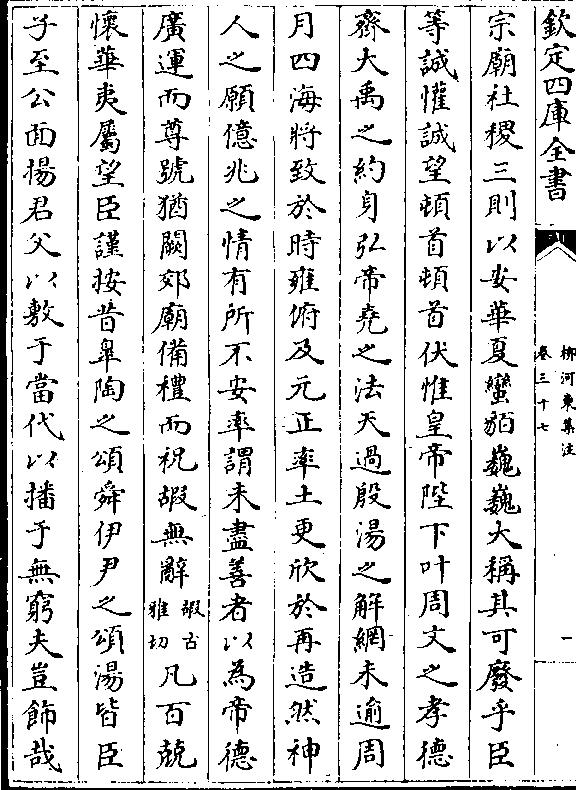 欽定四庫全書
柳河東集注
卷三十七
一
宗廟社稷三則以安華夏蠻貊巍巍大稱其可廢乎臣
等誠懽誠望頓首頓首伏惟皇帝陛下叶周文之孝德
齊大禹之約身弘帝堯之法天過殷湯之解網未逾周
月四海將致於時雍俯及元正率土更欣於再造然神
人之願億兆之情有所不安率謂未盡善者以為帝德
廣運而尊號猶闕郊廟備禮而祝嘏無辭嘏古雅切凡百兢
懷華夷屬望臣謹按昔臯陶之頌舜伊尹之頌湯皆臣
子至公面揚君父以敷于當代以播于無窮夫豈飾哉